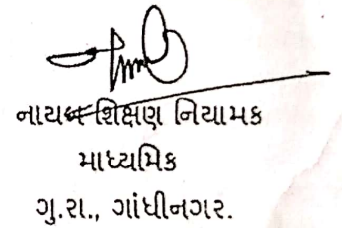 નાયબ શિક્ષણ નિયામક
માધ્યમિક
ગુ.રા., ગાંધીનગર.